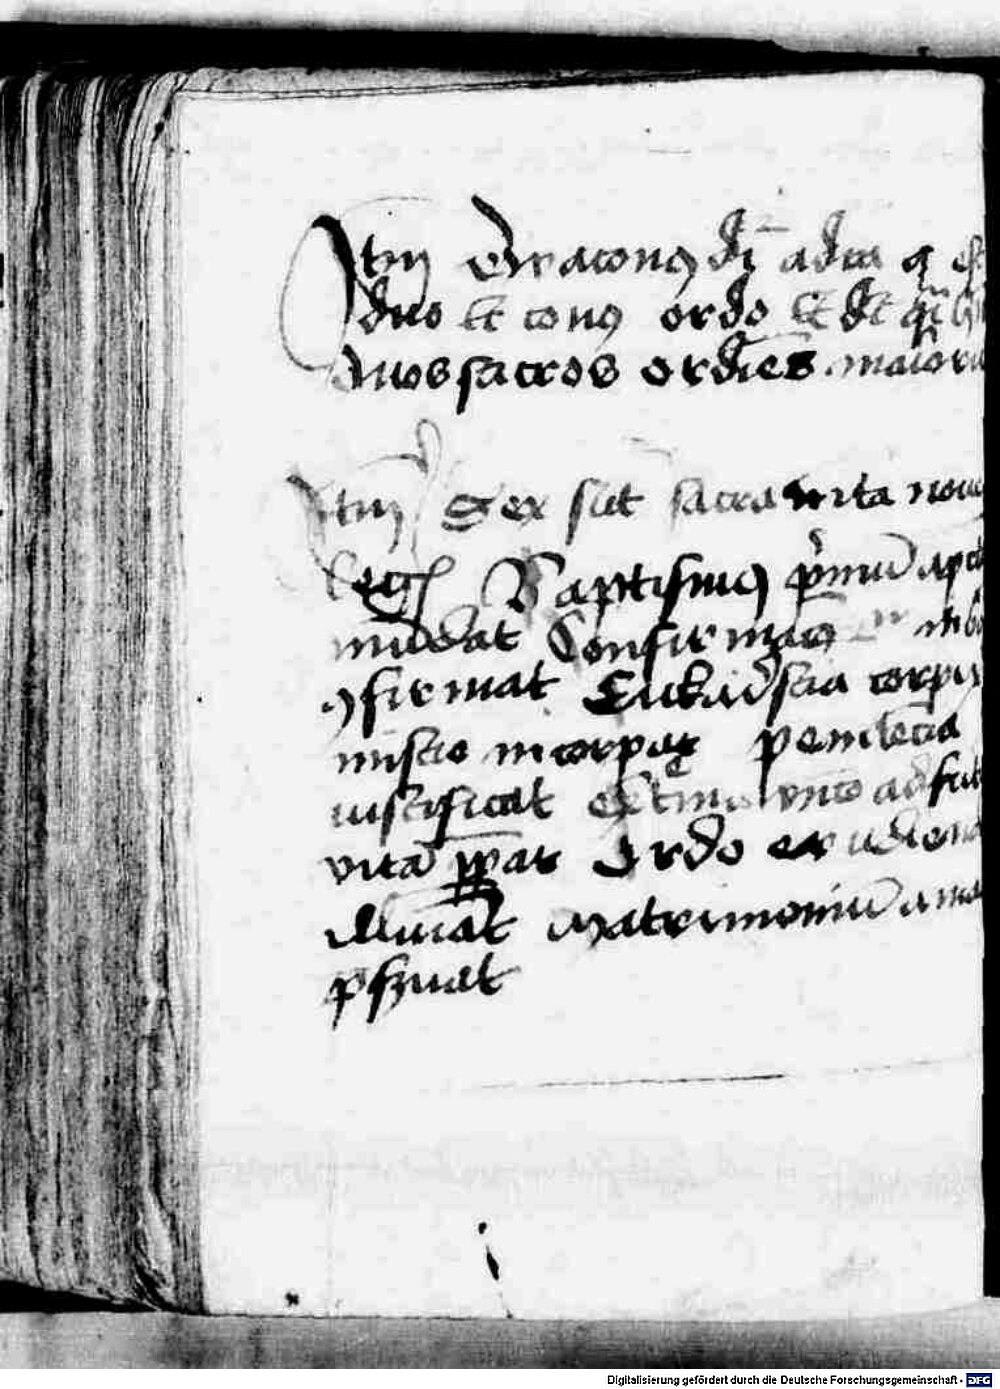 Itm dyaconus dr̄ a dia q
duo et conus ordo et dt̄ qi
duos sacros ordīes maioru
Itm Sex sūt sacramēta noue
legis Baptismus p̄mū
mūdat Confirmac̄o
ꝯfirmat Eukaristia corpus
misticū incorporat penitēcia
iustificat Extrema vnctio ad fut
vitā p̄parat Ordo erudiend
illūīat Matrimoniū a ma
p̄seruat
Digitalisierung gefördert durch die Deutsche Forschungsgemeinschaft - DFG